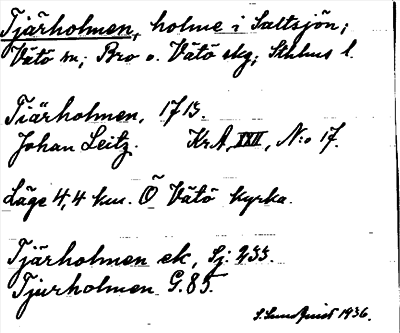 Tjärholmen, holme i Saltsjön;
Vätö sn; Bro o. Vätö skg; Sthlms l.
Tiärholmen, 1715.
Johan Leitz. KrA, XXII, N:o 17.
Läge 4,4 km. Ö Vätö kyrka.
Tjärholmen ek, Sj. 255.
Tjurholmen G.85.
S. Sundquist 1936.